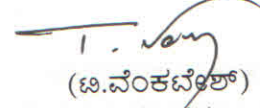 (ಟಿ.ವೆಂಕಟೇಶ್)